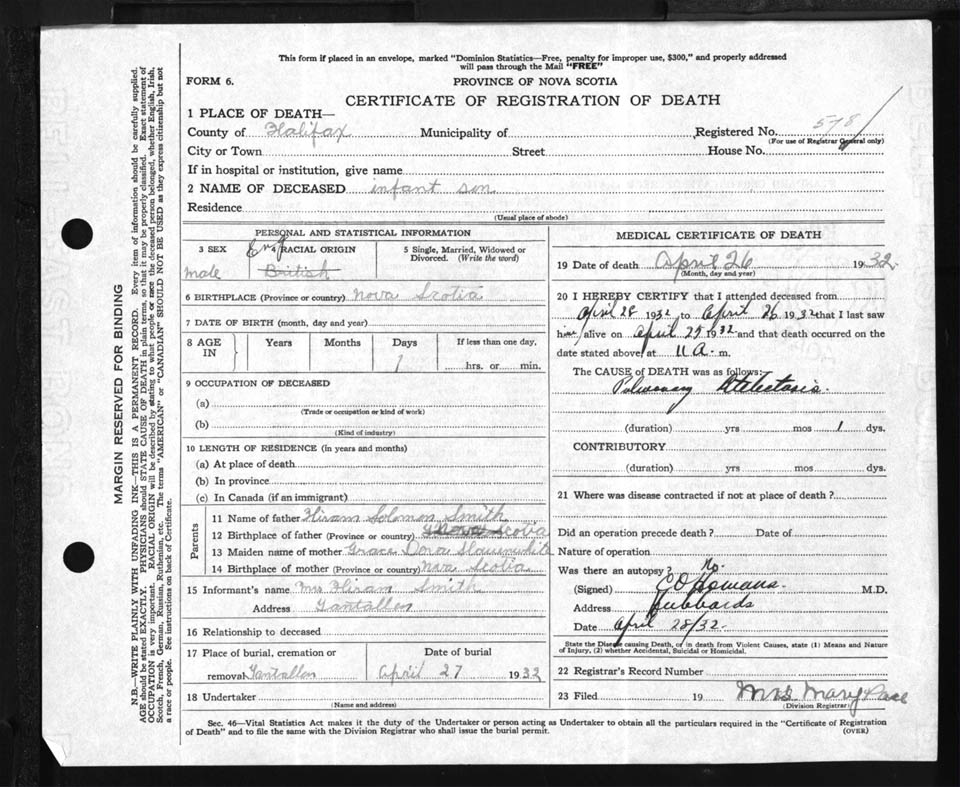 This form if placed in an envelope, marked "Dominion Statistics—Free, penalty for improper use, $300," and properly addressed
will pass through the Mail "FREE"
FORM 6.
PROVINCE OF NOVA SCOTIA
CERTIFICATE OF REGISTRATION OF DEATH
1 PLACE OF DEATH—
County of Halifax Municipality of Registered No. 578
(For use of Registrar General only)
City or Town Street House No.
If in hospital or institution, give name
2 NAME OF DECEASED infant son
Residence
(Usual place of abode)
PERSONAL AND STATISTICAL INFORMATION
3 SEX 4 RACIAL ORIGIN 5 Single, Married, Widowed or
Divorced. (Write the word)
Eng
male British
6 BIRTHPLACE (Province or country) Nova Scotia
7 DATE OF BIRTH (month, day and year)
8 AGE IN Years Months Days If less than one day,
1 hrs. or min.
9 OCCUPATION OF DECEASED
(a)
(Trade or occupation or kind of work)
(b)
(Kind of industry)
10 LENGTH OF RESIDENCE (in years and months)
(a) At place of death
(b) In province
(c) In Canada (if an immigrant)
Parents
11 Name of father Hiram Solomon Smith
12 Birthplace of father (Province or country) Nova Scotia
13 Maiden name of mother Grace Dora Slaunwhite
14 Birthplace of mother (Province or country) Nova Scotia
15 Informant's name Mrs Hiram Smith
Address Tantallon
16 Relationship to deceased
17 Place of burial, cremation or Date of burial
removal Tantallon April 27 1932
18 Undertaker
(Name and address)
MEDICAL CERTIFICATE OF DEATH
19 Date of death April 26 1932
(Month, day and year)
20 I HEREBY CERTIFY that I attended deceased from
April 25 1932 to April 26 1932 that I last saw
him alive on April 25 1932 and that death occurred on the
date stated above, at 11 A. m.
The CAUSE of DEATH was as follows:
Pulmonary Atelectasis
(duration) yrs mos 1 dys.
CONTRIBUTORY
(duration) yrs mos dys.
21 Where was disease contracted if not at place of death?
Did an operation precede death? Date of
Nature of operation
Was there an autopsy? No.
(Signed) M.D.
Address Hubbards
Date April 28/32.
State the Disease causing Death, or in death from Violent Causes, state (1) Means and Nature
of Injury, (2) whether Accidental, Suicidal or Homicidal.
22 Registrar's Record Number
23 Filed 19 Mrs Mary Pace
(Division Registrar)
Sec. 46—Vital Statistics Act makes it the duty of the Undertaker or person acting as Undertaker to obtain all the particulars required in the "Certificate of Registration
of Death" and to file the same with the Division Registrar who shall issue the burial permit.
(OVER)
MARGIN RESERVED FOR BINDING
N.B.—WRITE PLAINLY WITH UNFADING INK—THIS IS A PERMANENT RECORD. Every item of information should be carefully supplied.
AGE should be stated EXACTLY. PHYSICIANS should STATE CAUSE OF DEATH in plain terms, so that it may be properly classified. Exact statement of
OCCUPATION is very important. RACIAL ORIGIN will be described by stating to what people or race the deceased person belonged, whether English, Irish,
Scotch, French, German, Russian, Ruthenian, etc. The terms "AMERICAN" or "CANADIAN" SHOULD NOT BE USED as they express citizenship but not
a race or people. See instructions on back of Certificate.